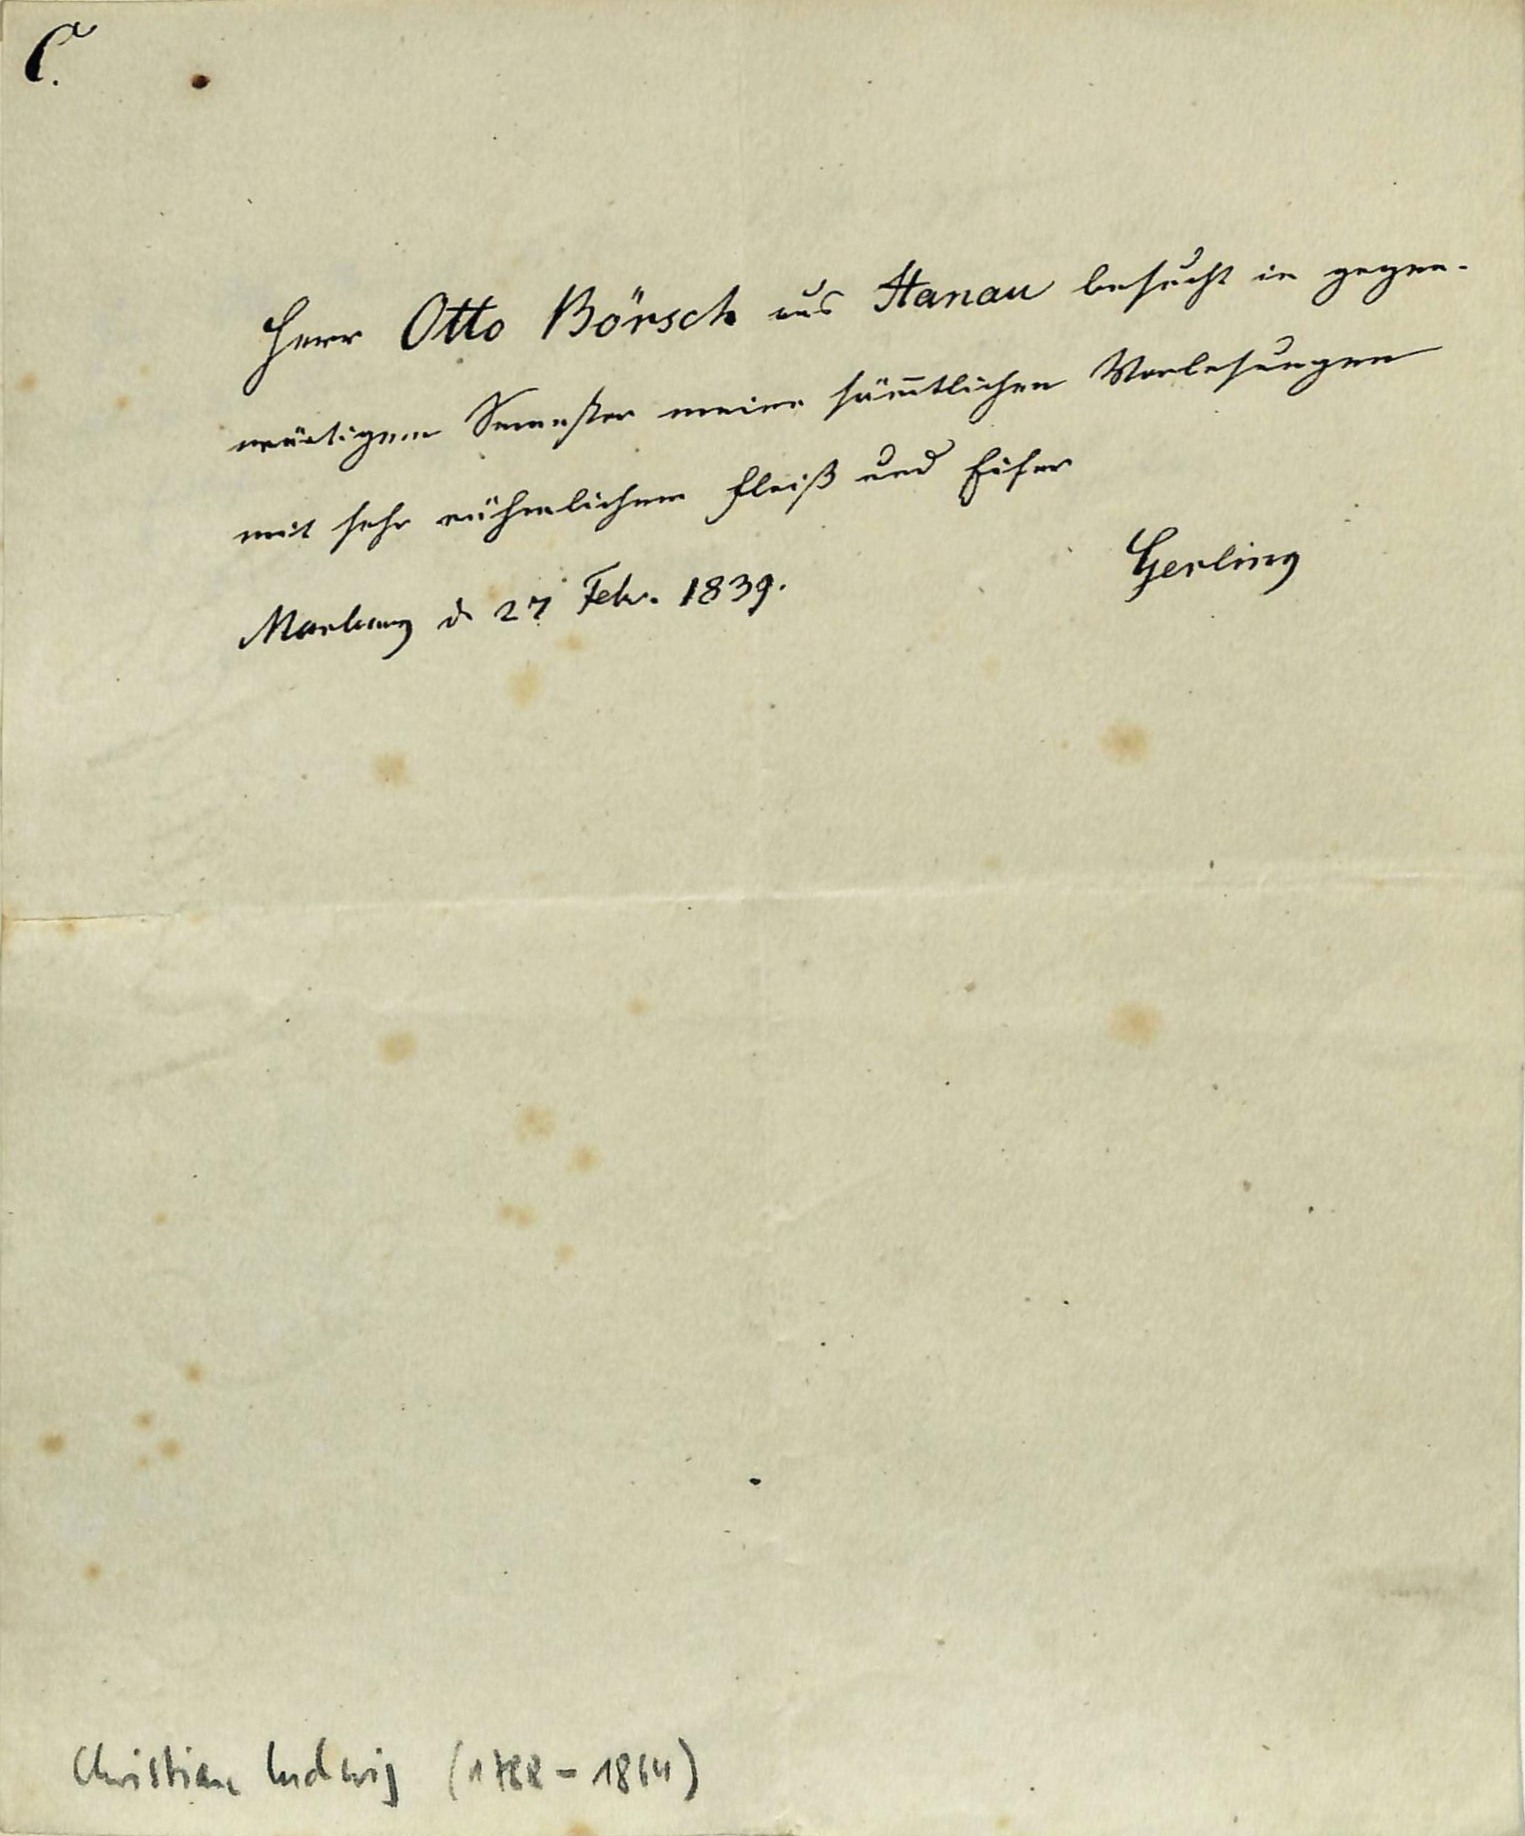 C.
Herr Otto Börsch aus Hanau besucht in gegen-
wärtigem Semester meine sämtlichen Vorlesungen
mit sehr rühmlichem Fleiß und Eifer
Gerling
Marburg d 27 Febr. 1839.
Christian Ludwig (1788 - 1864)